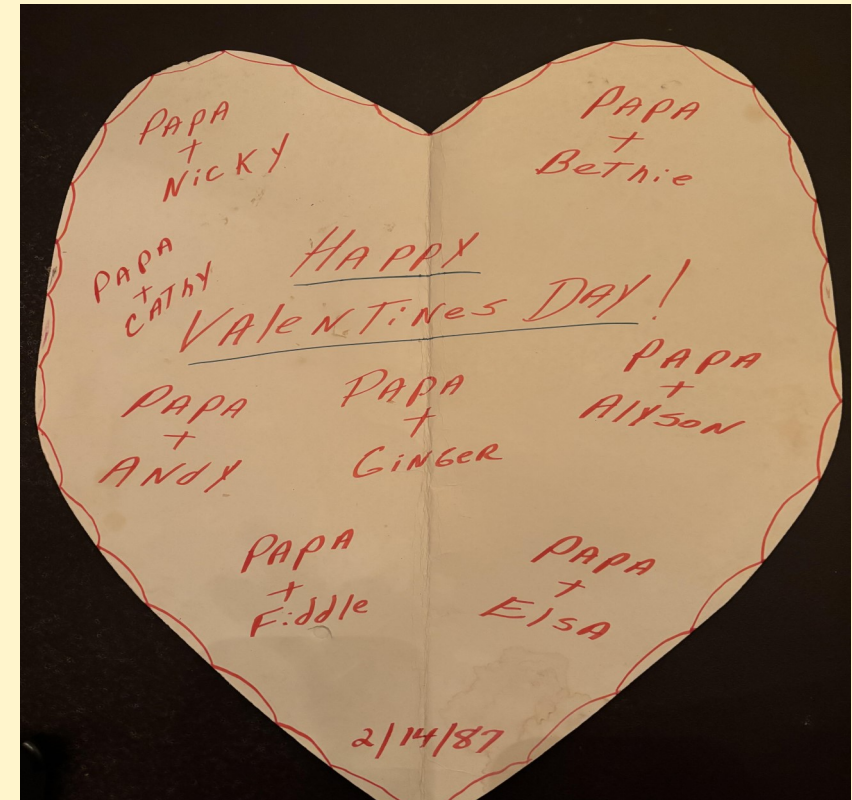 PAPA
+
NicKY
PAPA
+
BeThie
HAPPY
VAleNTiNes DAY!
PAPA
+
CAThY
PAPA
+
ANdY
PAPA
+
GiNGeR
PAPA
+
AlYsoN
PAPA
+
Fiddle
PAPA
+
ElsA
2/14/87